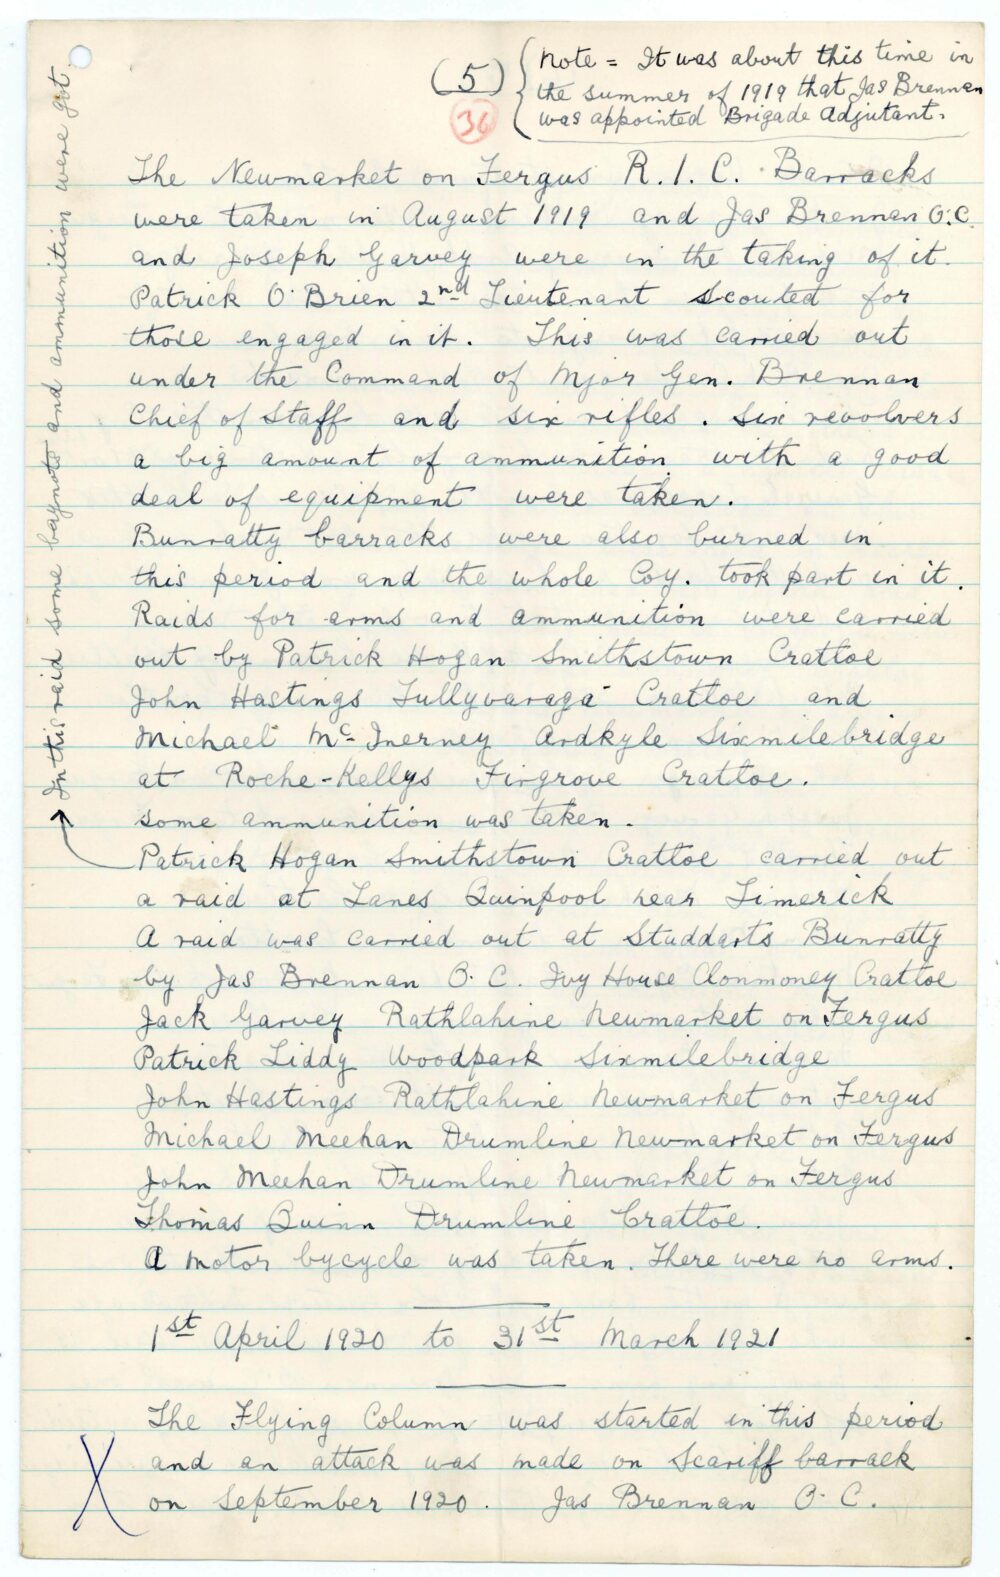 (5)
36
Note = It was about this time in
the summer of 1919 that Jas Brennan
was appointed Brigade Adjutant.
The Newmarket on Fergus R.I.C. Barracks
were taken in August 1919 and Jas Brennan O.C.
and Joseph Garvey were in the taking of it.
Patrick O'Brien 2nd Lieutenant scouted for
those engaged in it. This was carried out
under the Command of Mjor Gen. Brennan
Chief of Staff and six rifles. six revolvers
a big amount of ammunition with a good
deal of equipment were taken.
Bunratty barracks were also burned in
this period and the whole Coy. took part in it.
Raids for arms and ammunition were carried
out by Patrick Hogan Smithstown Crattoe
John Hastings Tullyvaraga Crattoe and
Michael McInerney Ardkyle Sixmilebridge
at Roche-Kellys Firgrove Crattoe.
some ammunition was taken.
Patrick Hogan Smithstown Crattoe carried out
a raid at Lanes Quinpool near Limerick
→ In this raid some baynots and ammunition were got.
A raid was carried out at Studdarts Bunratty
by Jas Brennan O.C. Ivy House Clonmoney Crattoe
Jack Garvey Rathlahine Newmarket on Fergus
Patrick Liddy Woodpark Sixmilebridge
John Hastings Rathlahine Newmarket on Fergus
Michael Meehan Drumline Newmarket on Fergus
John Meehan Drumline Newmarket on Fergus
Thomas Quinn Drumline Crattoe.
A motor bycycle was taken. There were no arms.
1st April 1920 to 31st March 1921
The Flying Column was started in this period
and an attack was made on Scariff barrack
on September 1920. Jas Brennan O.C.